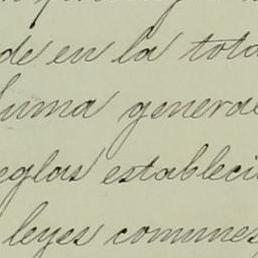 de en la tota
suma genera
eglas estableci
leyes comunes